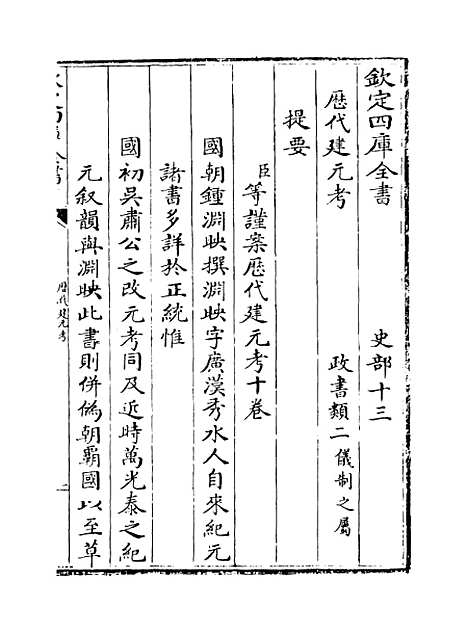 欽定四庫全書　史部十三
歴代建元考　政書類二儀制之屬
提要
臣等謹案歴代建元考十卷
國朝鍾淵映撰淵映字廣漢秀水人自來紀元
諸書多詳於正統惟
國初吳肅公之改元考同及近時萬光泰之紀
元叙韻與淵映此書則併僞朝霸國以至草
歴代建元考
一